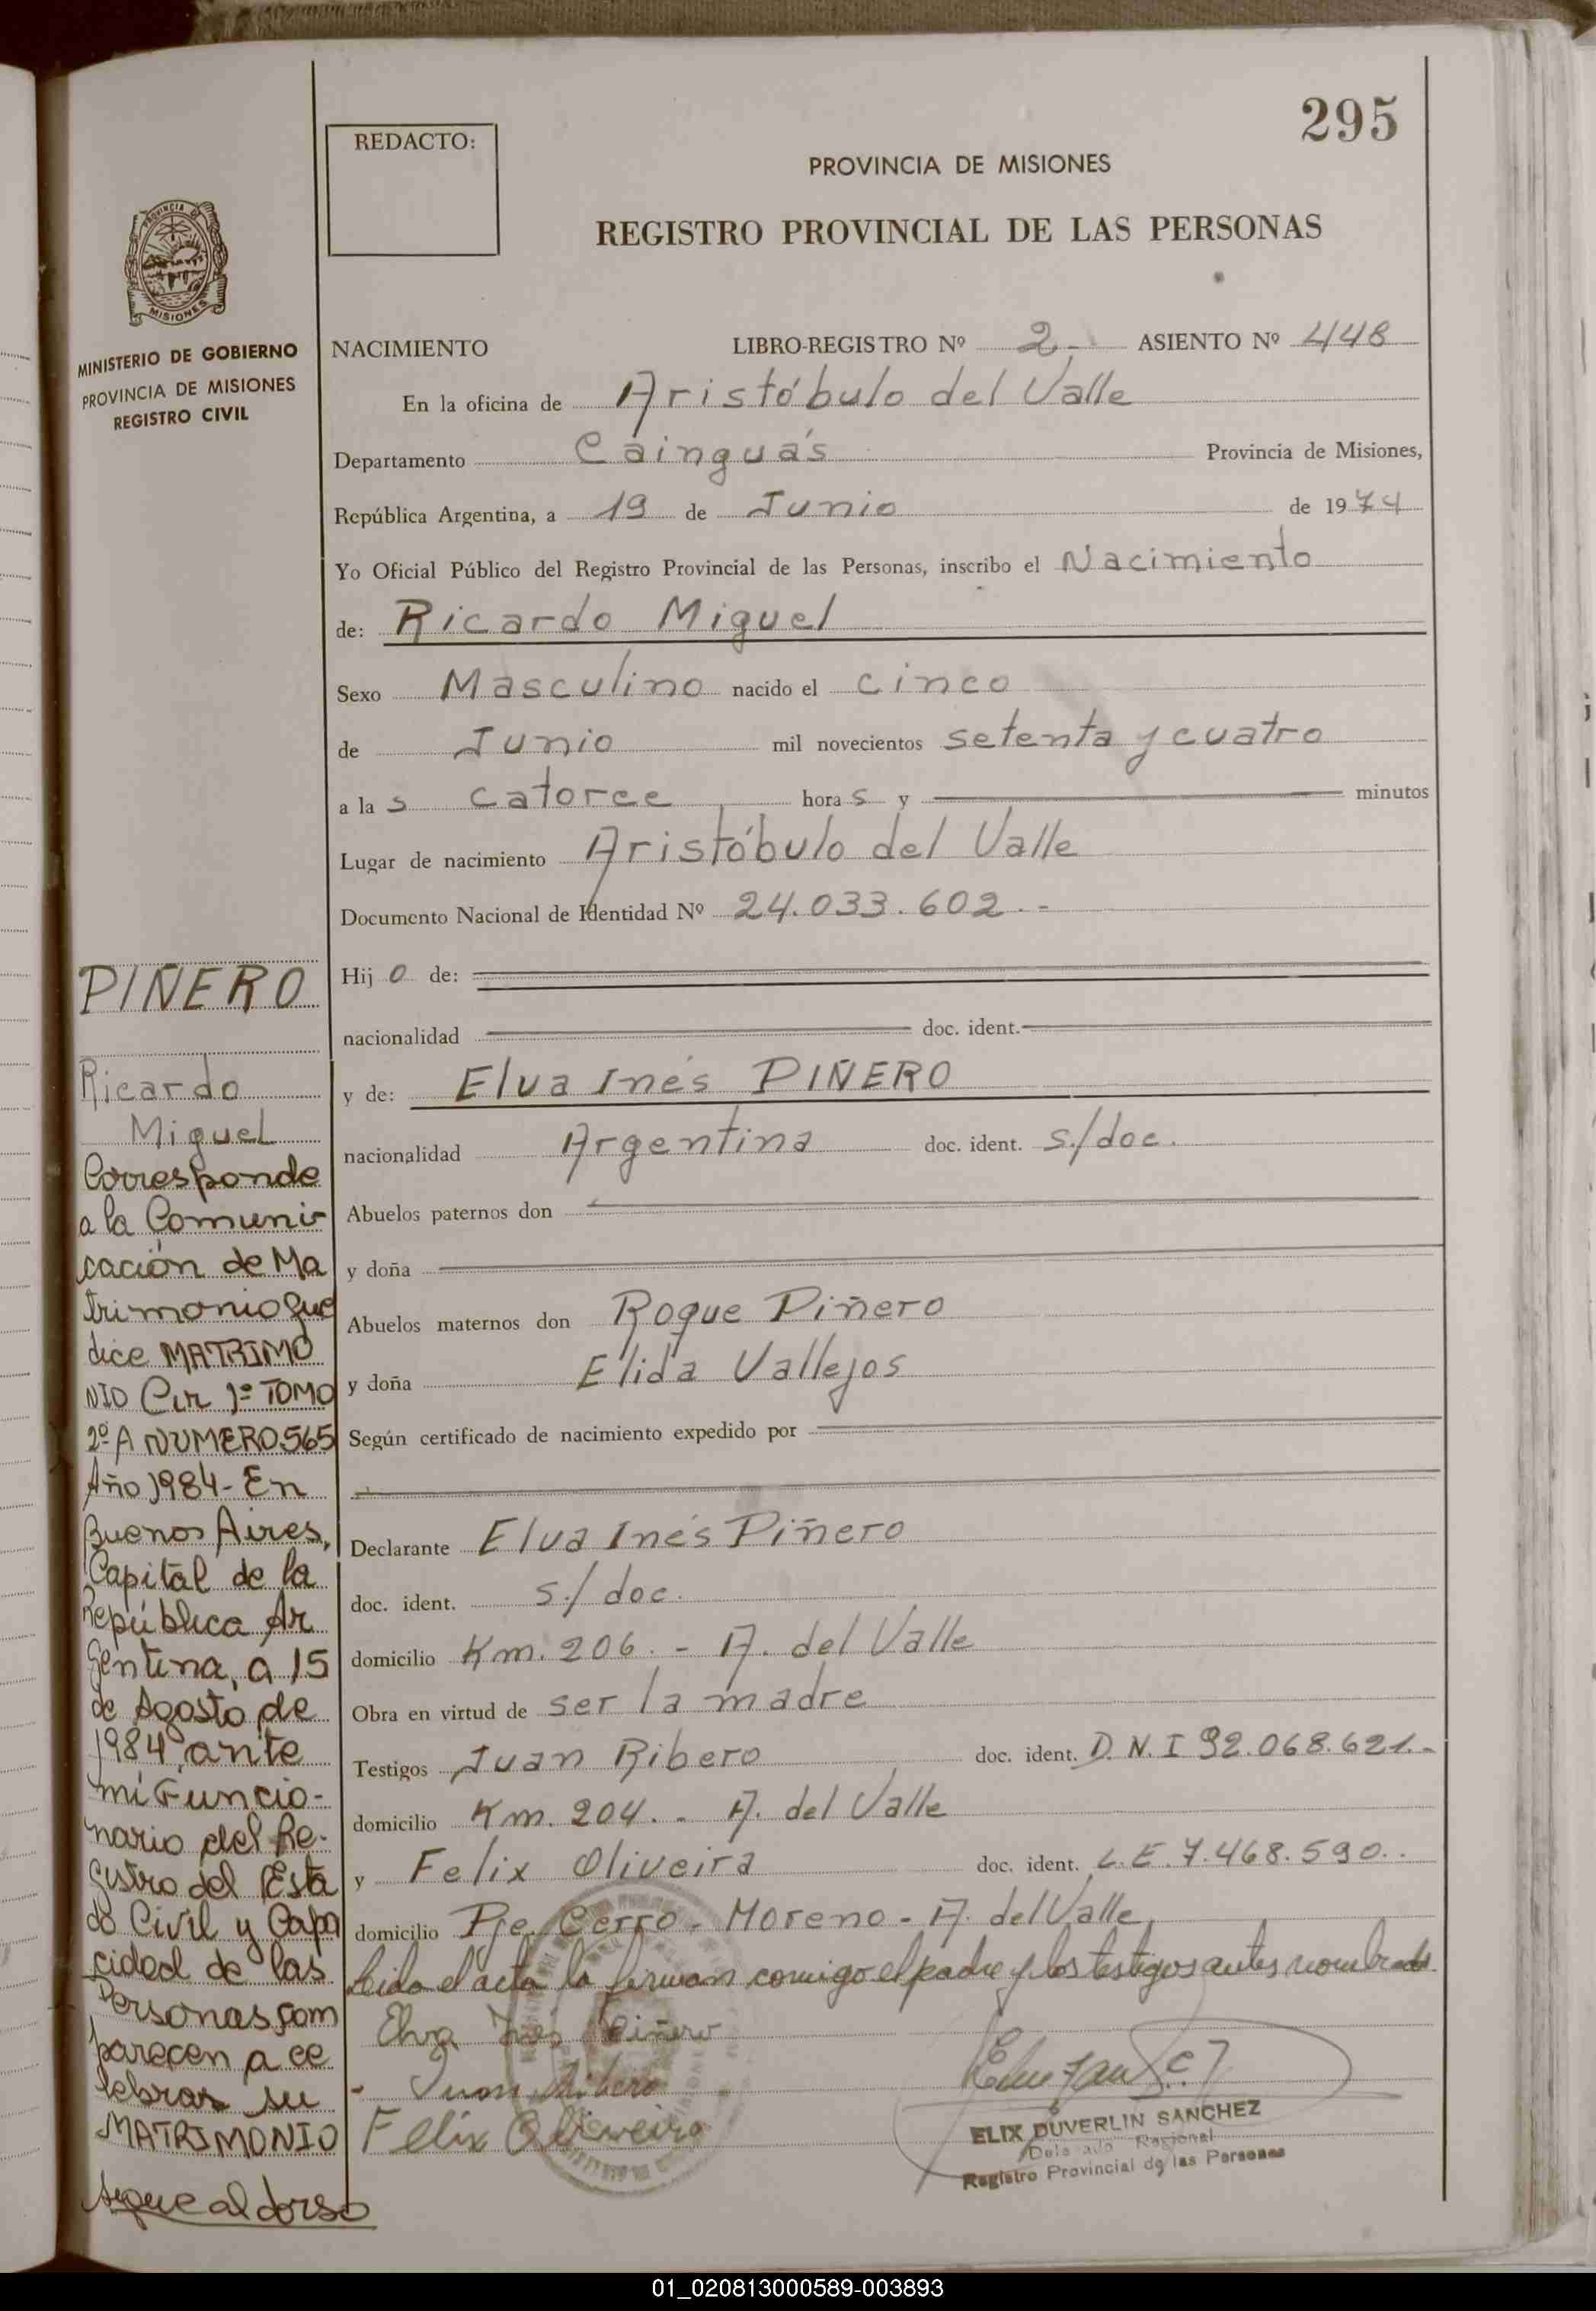 295
REDACTO:
PROVINCIA DE MISIONES
REGISTRO PROVINCIAL DE LAS PERSONAS
PROVINCIA DE
MISIONES
MINISTERIO DE GOBIERNO
PROVINCIA DE MISIONES
REGISTRO CIVIL
NACIMIENTO LIBRO-REGISTRO Nº 2.- ASIENTO Nº 448
En la oficina de Aristóbulo del Valle
Departamento Cainguás Provincia de Misiones,
República Argentina, a 19 de Junio de 1974
Yo Oficial Público del Registro Provincial de las Personas, inscribo el Nacimiento
de: Ricardo Miguel
Sexo Masculino nacido el cinco
de Junio mil novecientos setenta y cuatro
a la s catorce hora s y minutos
Lugar de nacimiento Aristóbulo del Valle
Documento Nacional de Identidad Nº 24.033.602.-
Hij o de:
nacionalidad doc. ident.
y de: Elva Inés PIÑERO
nacionalidad Argentina doc. ident. s./doc.
Abuelos paternos don
y doña
Abuelos maternos don Roque Piñero
y doña Elida Vallejos
Según certificado de nacimiento expedido por
Declarante Elva Inés Piñero
doc. ident. s./doc.
domicilio Km. 206.- A. del Valle
Obra en virtud de ser la madre
Testigos Juan Ribero doc. ident. D.N.I 92.068.621.-
domicilio Km. 204.- A. del Valle
y Felix Oliveira doc. ident. L.E. 7.468.590..
domicilio Pje. Cerro-Moreno-A. del Valle
Leido el acta la firman comigo el padre y los testigos antes nombrados
Elva Inés Piñero
Juan Ribero
Felix Oliveira
ELIX DUVERLIN SANCHEZ
Delegado Regional
Registro Provincial de las Personas
PIÑERO
Ricardo
Miguel
Corresponde
a la Comuni-
cación de Ma
trimonio que
dice MATRIMO
NIO Cir 1º TOMO
2º A NUMERO 565
Año 1984- En
Buenos Aires,
Capital de la
República Ar
gentina, a 15
de Agosto de
1984, ante
mi Funcio-
nario del Re-
gistro del Esta
do Civil y Capa
cidad de las
Personas com
parecen a ce
lebrar su
MATRIMONIO
sigue al dorso
01_020813000589-003893